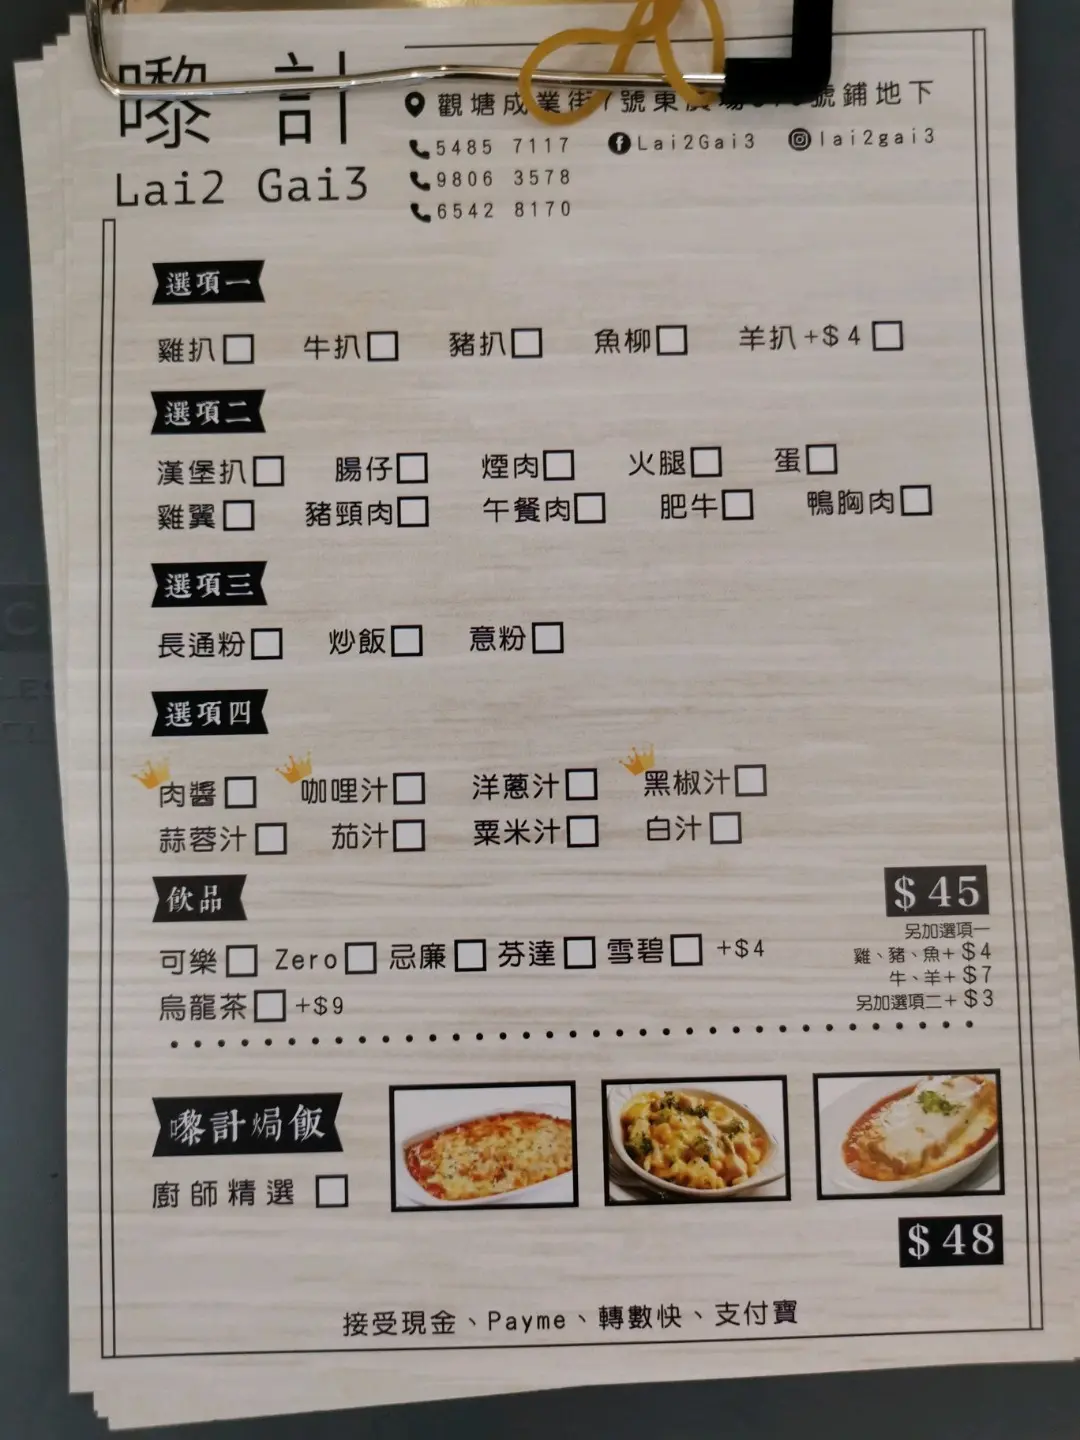 嚟計
Lai2 Gai3
觀塘成業街7號東廣場 號鋪地下
5485 7117
Lai2Gai3
lai2gai3
9806 3578
6542 8170
選項一
雞扒 牛扒 豬扒 魚柳 羊扒+$4
選項二
漢堡扒 腸仔 煙肉 火腿 蛋
雞翼 豬頸肉 午餐肉 肥牛 鴨胸肉
選項三
長通粉 炒飯 意粉
選項四
肉醬 咖哩汁 洋蔥汁 黑椒汁
蒜蓉汁 茄汁 粟米汁 白汁
飲品
可樂 Zero 忌廉 芬達 雪碧 +$4
烏龍茶 +$9
$45
另加選項一
雞、豬、魚+$4
牛、羊+$7
另加選項二+$3
嚟計焗飯
廚師精選
$48
接受現金、Payme、轉數快、支付寶